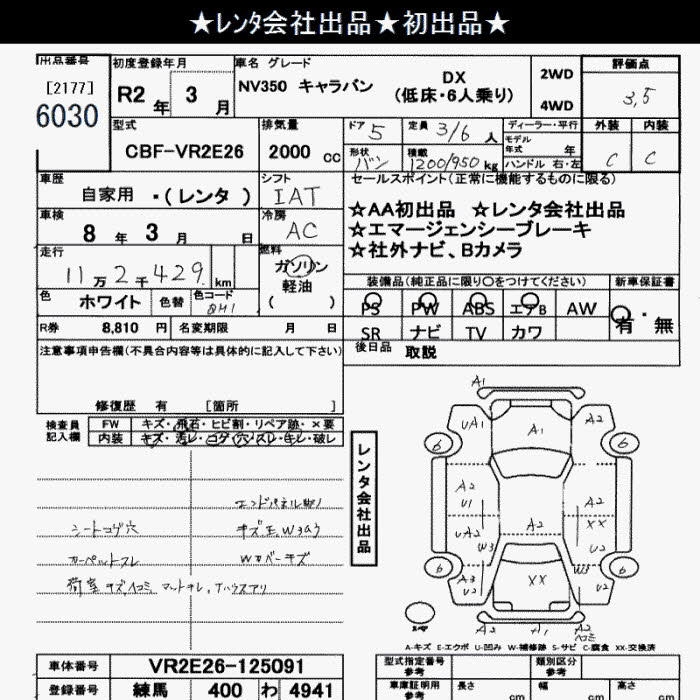 ★レンタ会社出品★初出品★
出品番号
[2177]
6030
初度登録年月
R2 年 3 月
車名 グレード
NV350 キャラバン
DX
(低床・6人乗り)
2WD
4WD
評価点
3,5
外装 内装
C C
型式
CBF-VR2E26
排気量
2000 cc
ドア 5
定員 3/6 人
形状 バン
積載 1200/950 kg
ディーラー・平行
モデル年式 年
ハンドル 右・左
車歴
自家用 ・(レンタ )
シフト
IAT
車検
8 年 3 月 日
冷房
AC
走行
11万2千429. km
燃料
ガソリン
軽油
( )
色 ホワイト 色替
色コード
QM1
R券 8,810 円 名変期限 月 日
セールスポイント(正常に機能するものに限る)
☆AA初出品 ☆レンタ会社出品
☆エマージェンシーブレーキ
☆社外ナビ、Bカメラ
装備品(純正品に限り○をつけてください) 新車保証書
PS PW ABS エアB AW
SR ナビ TV カワ
有・無
後日品 取説
注意事項申告欄(不具合内容等は具体的に記入して下さい)
修復歴 有 [箇所 ]
検査員
記入欄
FW キズ・飛石・ヒビ割・リペア跡・×要
内装 キズ・汚レ・コゲ・穴・スレ・キレ・破レ
シートコゲ穴
カーペットスレ
荷室キズ凹コミ
キズ
レンタ会社出品
A1
UA1 A1 A2
6 6
A2
U1
UA2 A2
A2
XX
U2
W3 W3
6 6
A3
U2
XX
U2
A2 A1 A2
A-キズ E-エクボ U-凹み W-補修跡 S-サビ C-腐食 XX-交換済
車体番号 VR2E26-125091
登録番号 練馬 400 わ 4941
型式指定番号
参考
類別区分
参考
車庫証明用
参考
長さ cm 幅 cm 高さ cm